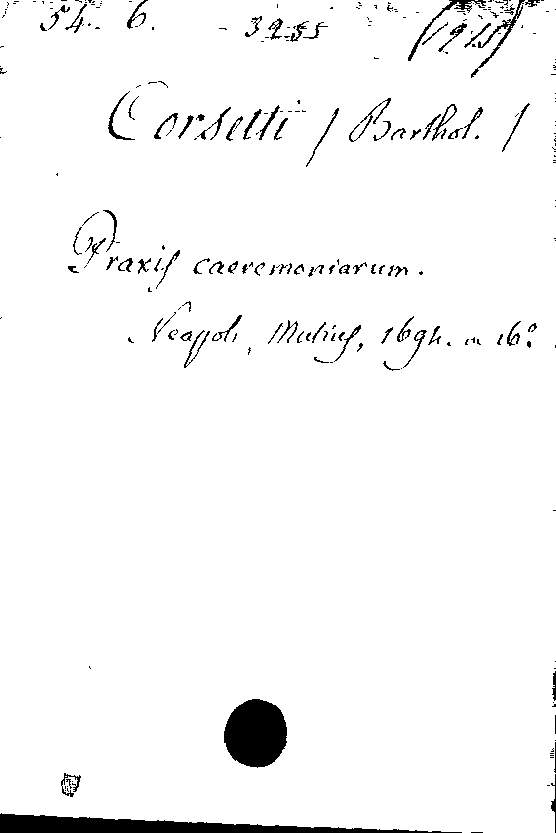 54. 6. - 3255 (1915)
Corsetti / Barthol. /
Praxis caeremoniarum.
Neapoli, Mutius, 1694. in 16º.